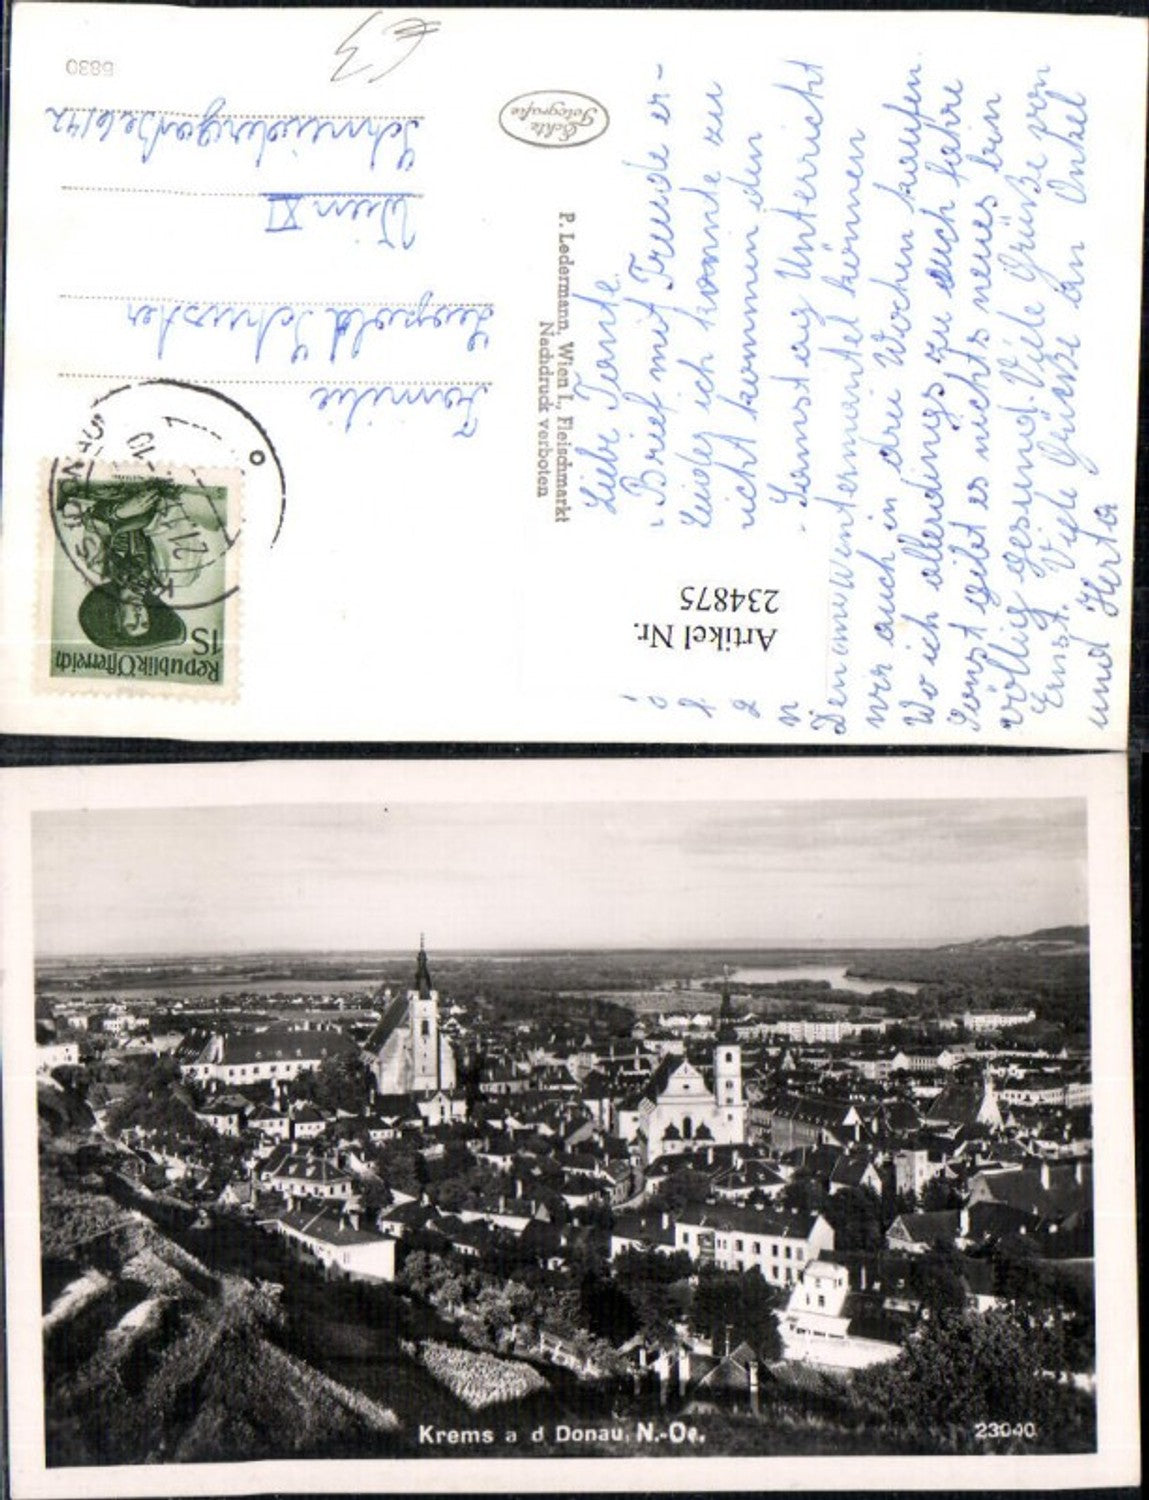 Liebe Tante.
Brief mit Freude er-
Leider ich konnte zu
nicht kommen den
Samstag Unterricht
Den Wintermantel können
wir auch in drei Wochen kaufen.
Wo ich allerdings zu euch fahre
Sonst gibt es nichts neues bin
völlig gesund. Viele Grüße von
Ernst. Viele Grüße an Onkel
und Herta
Artikel Nr.
234875
P. Ledermann, Wien I., Fleischmarkt
Nachdruck verboten
Echte
Fotografie
€3
Republik Österreich
1S
KREMS
Familie
Leopold Schuster
Wien XI
Schneidergasse 6/42
5830
Krems a d Donau, N.-Oe.
23040